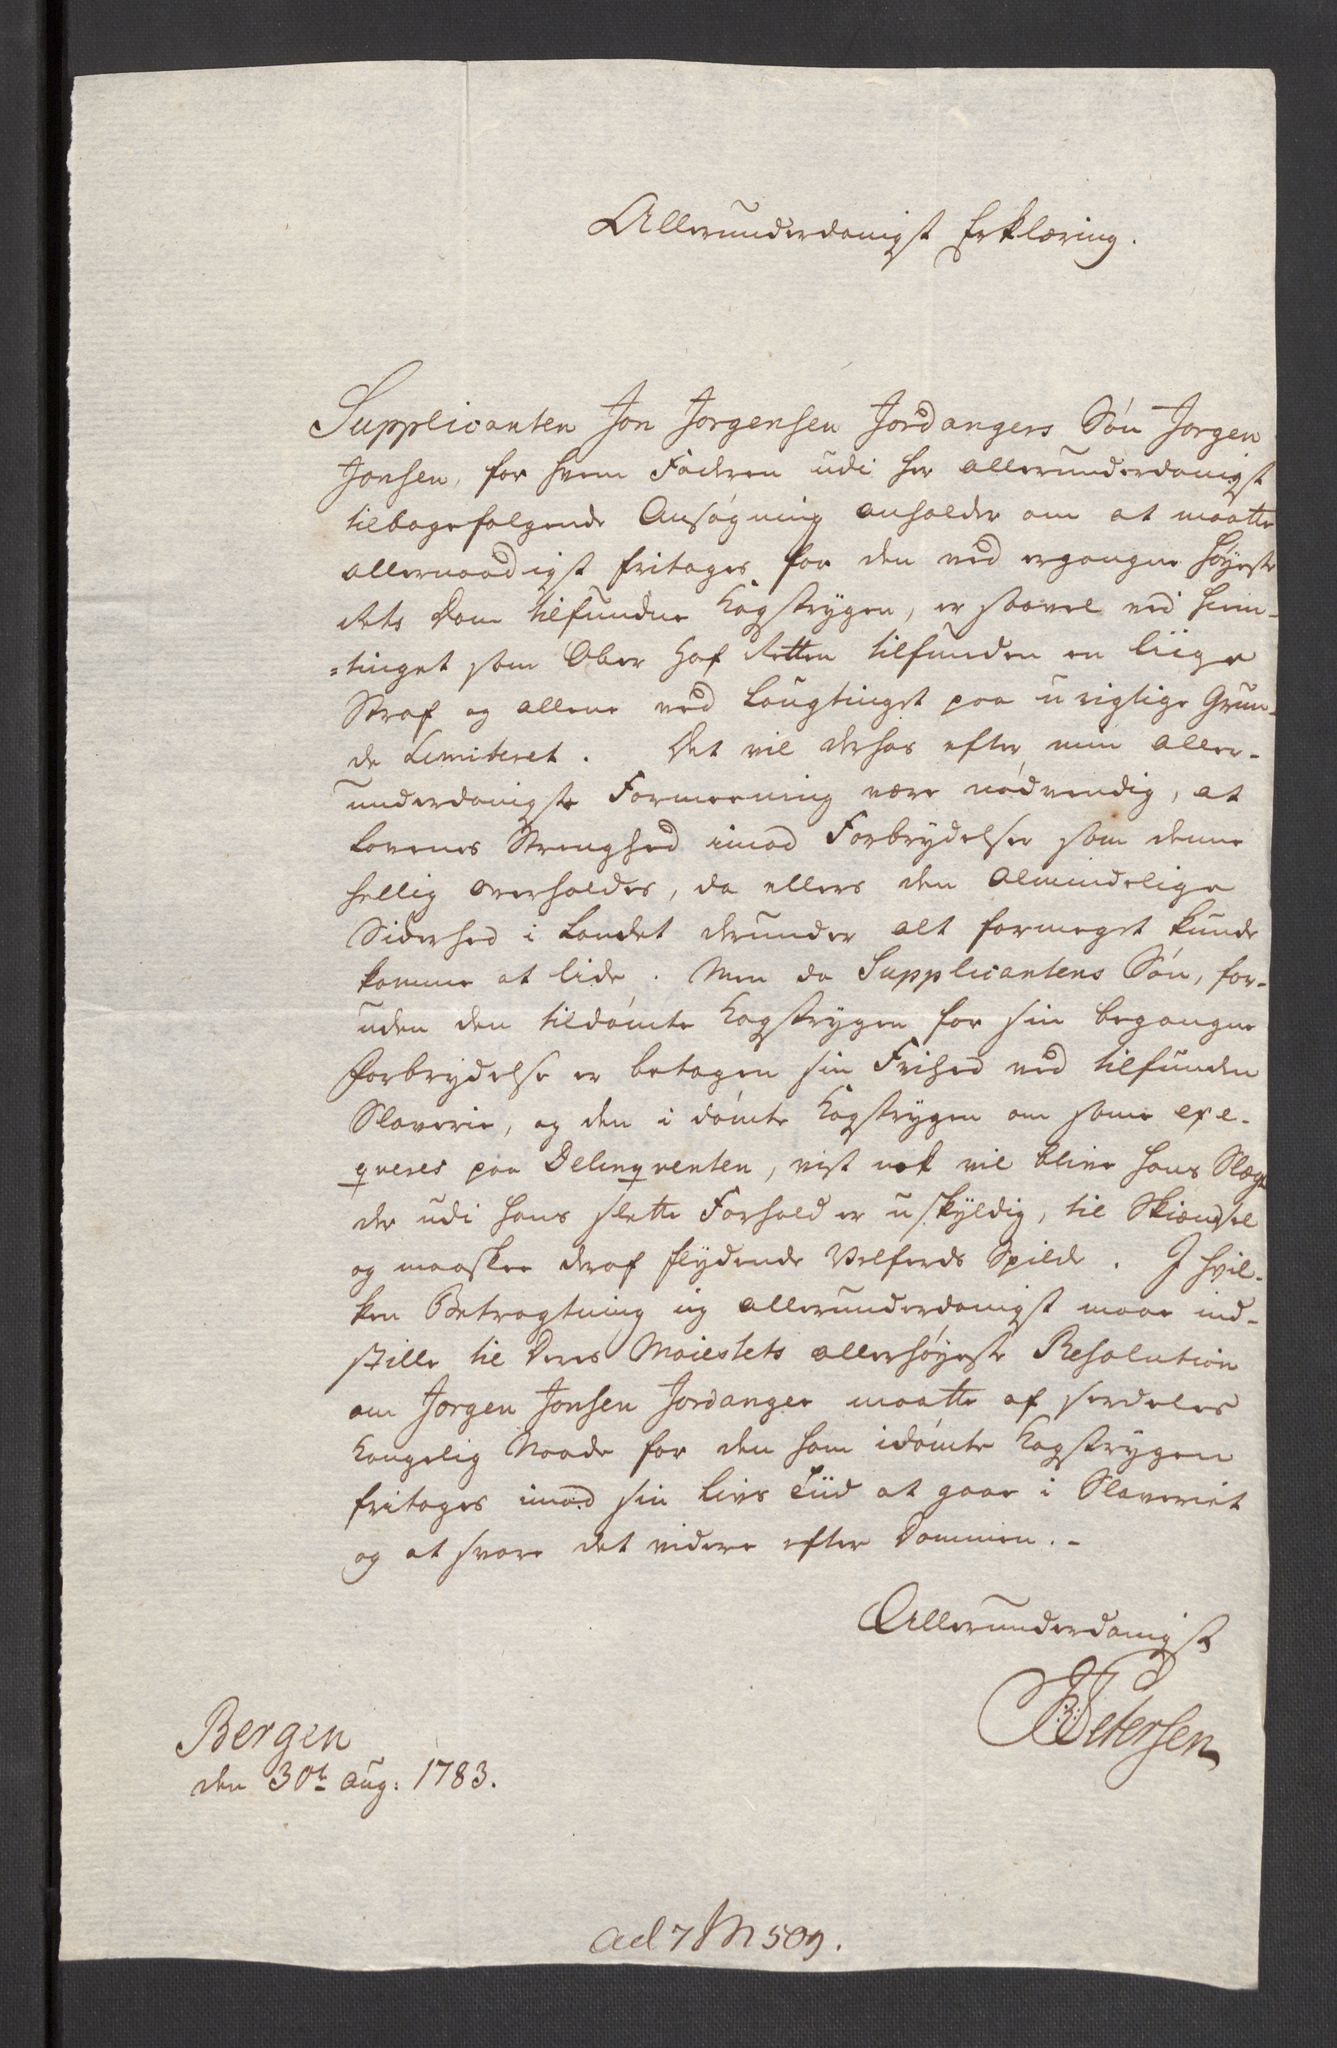 Allerunderdanigst Erklæring.
Supplicanten Jon Jorgensen Jordangers Søn Jorgen
Jonsen, for hvem Faderen udi her allerunderdanigst
tilbagefølgende Ansøgning anholder om at maatte
allernaadigst fritages for den ved ergangne Høyeste
Rets Dom tilfundne Kagstrygen, er saavel ved Hiem-
=tinget som Ober Hof Retten tilfunden en liige
Straf og allene ved Laugtinget paa urigtige Grun-
de Limiteret. Det vil derhos efter min aller-
underdanigste Formeening være nødvendig, at
Lovenes Strenghed imod Forbrydelser som denne
hellig overholdes, da ellers den Almindelige
Siderhed i Landet derunder alt formeget kunde
komme at lide. Men da Supplicantens Søn, for-
uden den tildømte Kagstrygen for sin begangne
Forbrydelse er betagen sin Frihed ved tilfunden
Slaverie, og den idømte Kagstrygen om samme exe-
qveres paa Delinqventen, vist nok vil blive hans Slægt
der udi hans slette Forhold er uskyldig, til Skiændsel
og maaskee deraf flydende Velferds Spilde. I hvil-
ken Betragtning ieg allerunderdanigst maae ind-
stille til Deres Maiestets allerhøyeste Resolution
om Jorgen Jonsen Jordanger maatte af serdeles
Kongelig Naade for den ham idømte Kagstrygen
fritages imod sin Livs Tiid at gaae i Slaveriet
og at svare det videre efter Dommen.-
Allerunderdanigst
Petersen
Bergen
den 30te Aug: 1783.
ad 7 M 509.